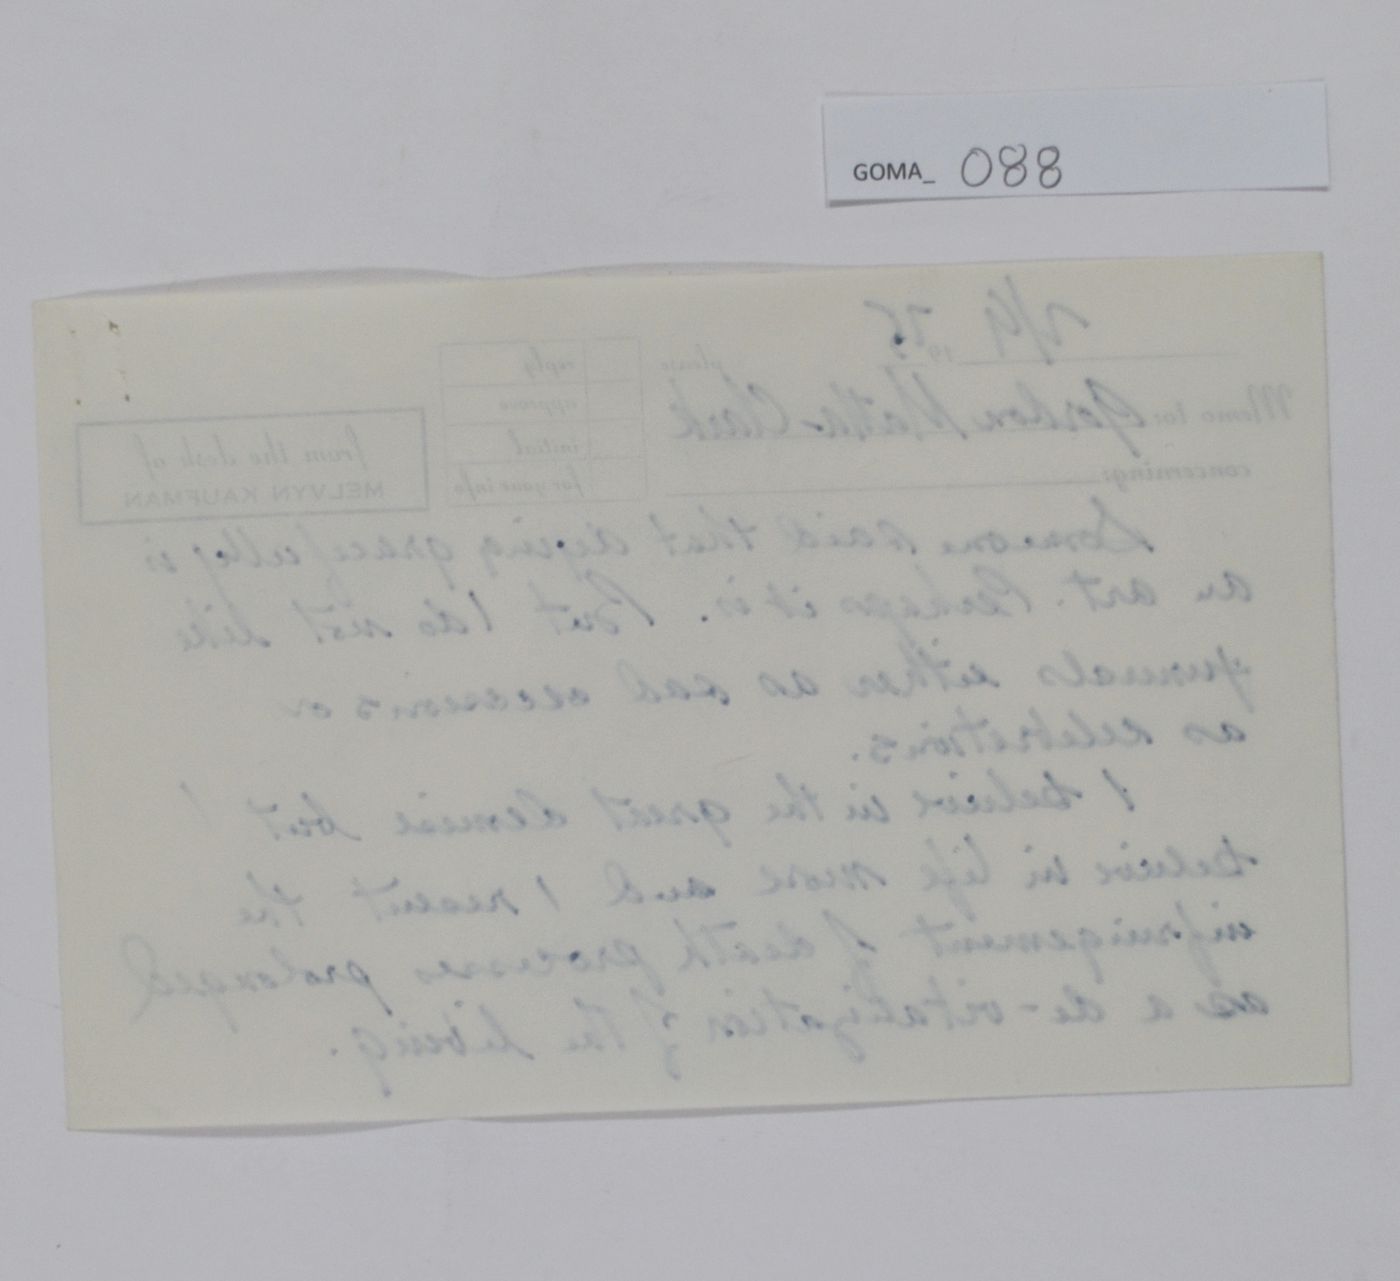 GOMA_ 088
19 75
please
reply
approve
initial
for your info
Memo to: Gordon Matta Clark
concerning:
from the desk of
MELVYN KAUFMAN
Someone said that dying gracefully is
an art. Perhaps it is. But I do not like
funerals either as sad occasions or
as celebrations.
I believe in the great demise but I
believe in life more and I resent the
infringement of death processes prolonged
as a de-vitalization of the living.